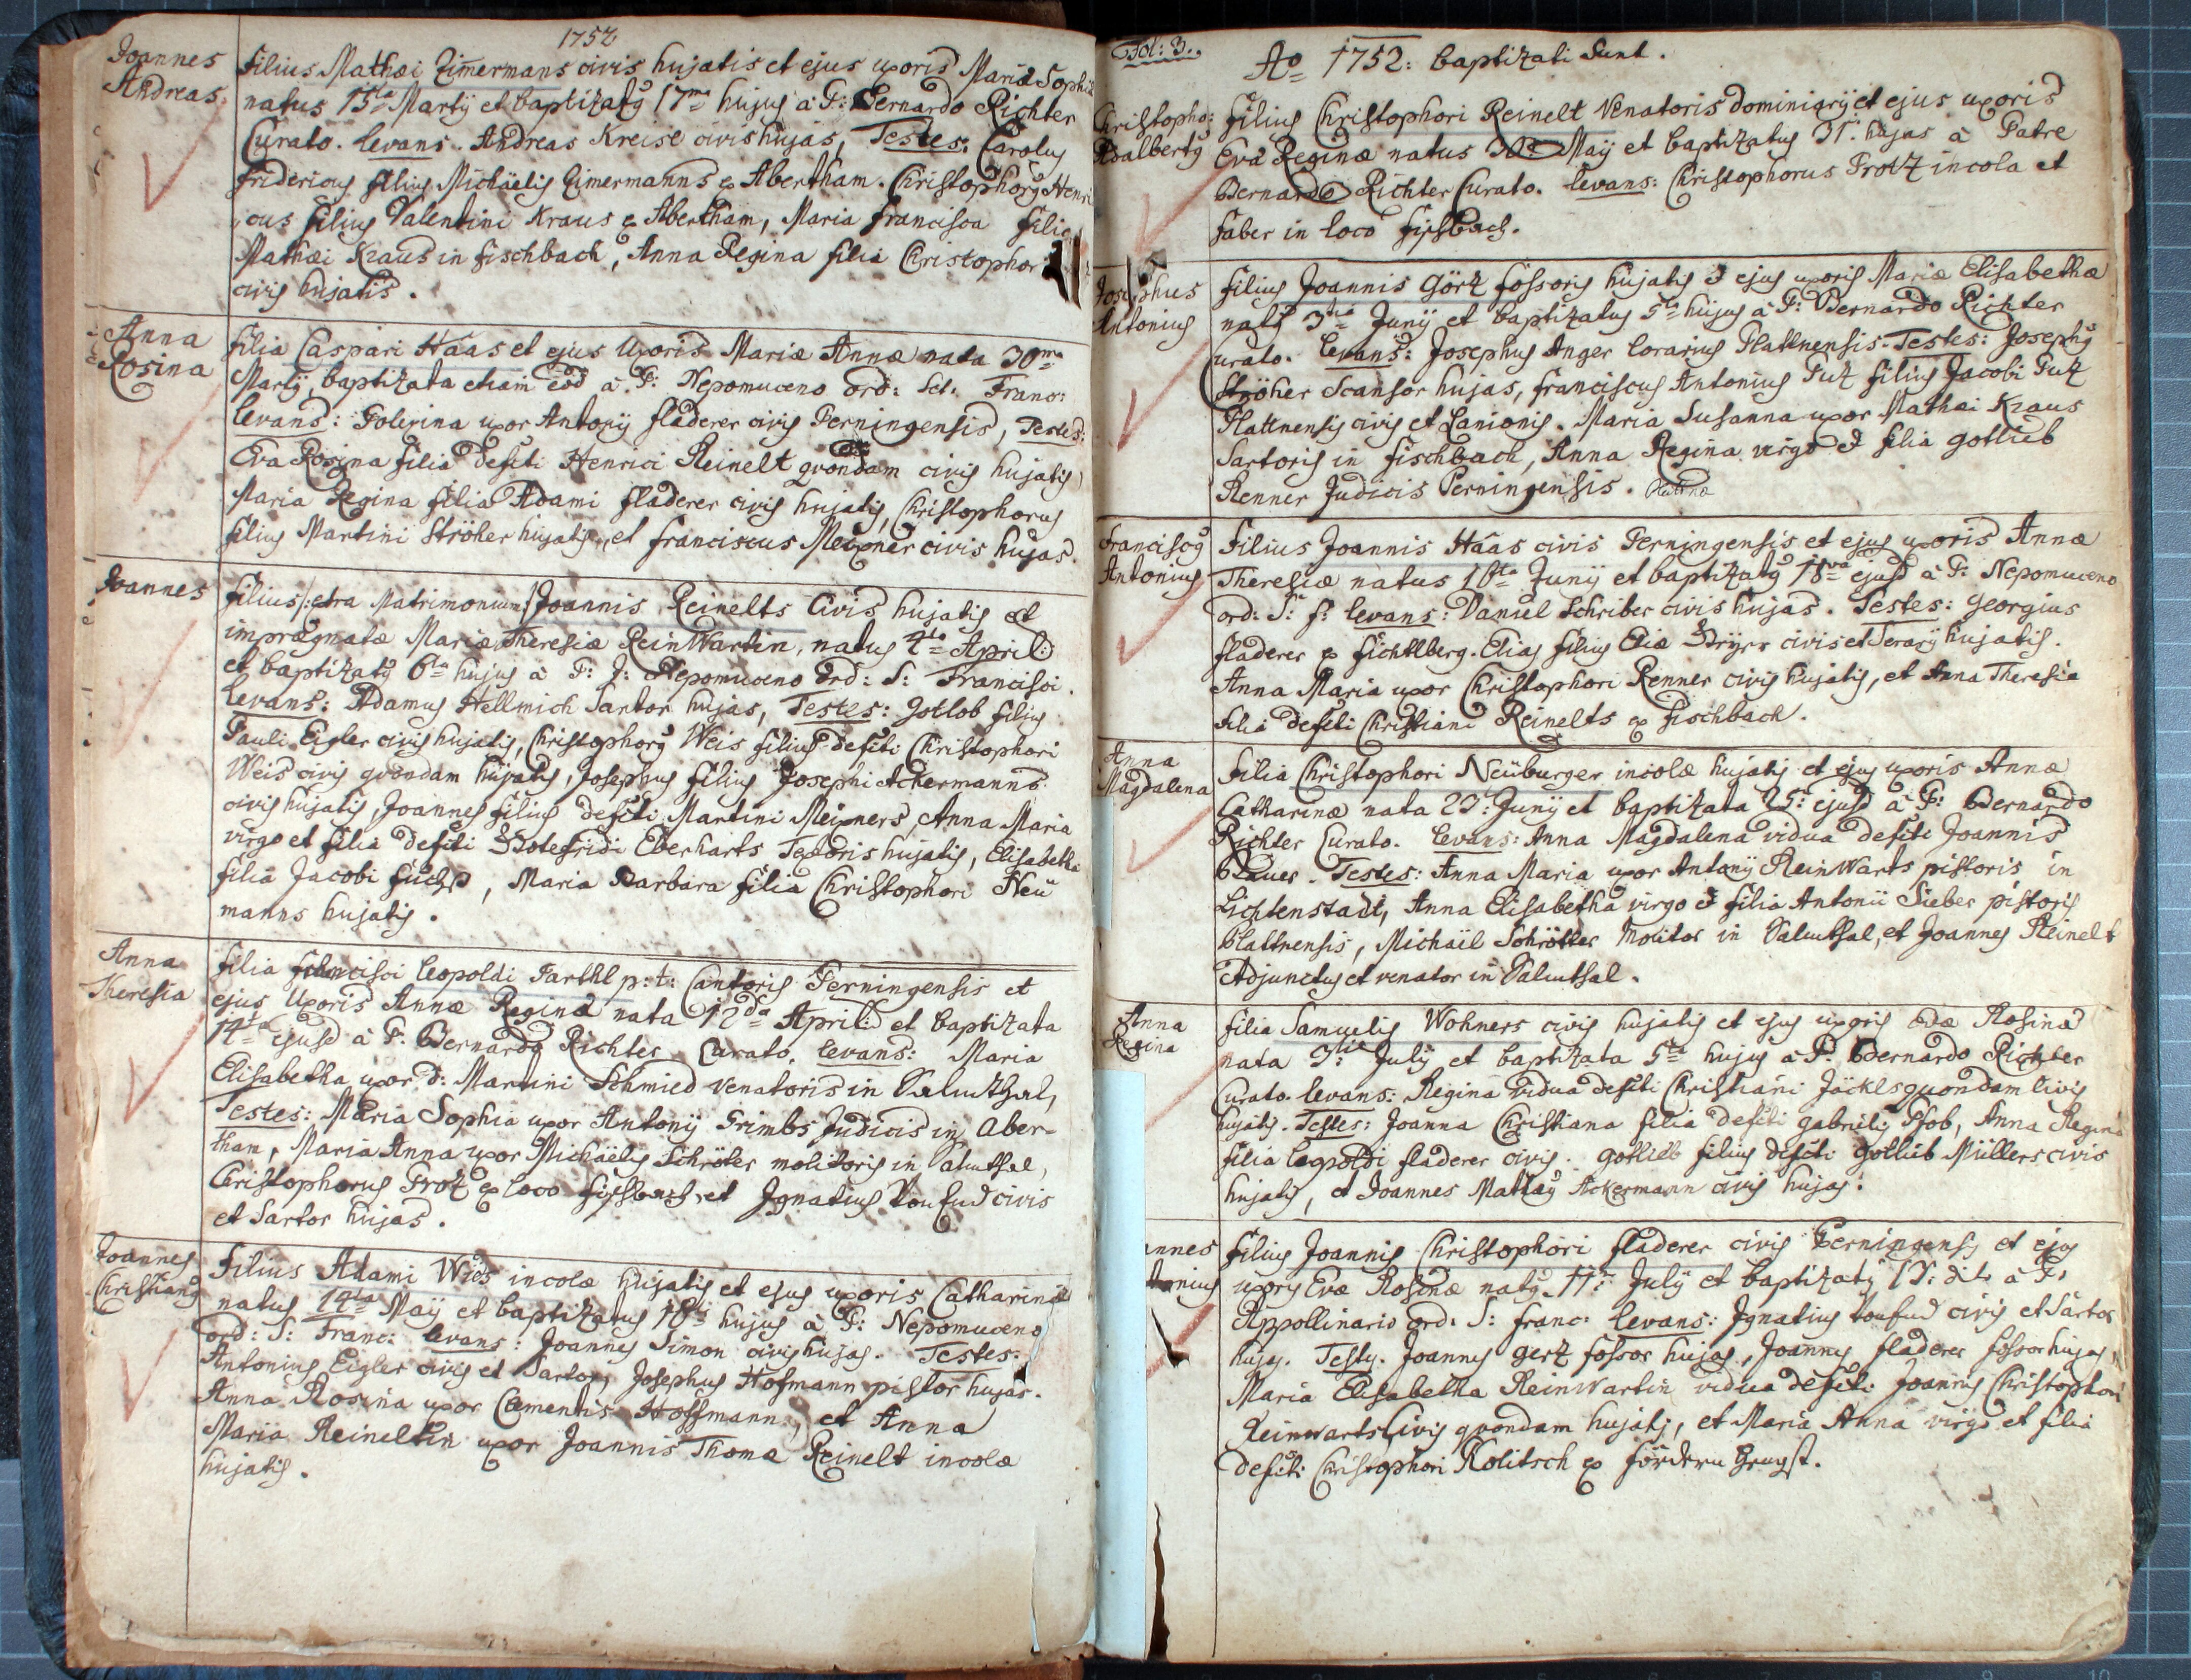 1752
Joannes
Andreas
Filius Mathæi Zimermans civis hujatis et ejus uxoris Mariæ Sophiæ
natus 15ta Martij et baptizatg 17ma hujus à P: Bernardo Richter
Curato. Levans. Andreas Kreisl civis hujas, Testes: Carolus
Fridericus filius Michäelis Zimermanns ex Abertham. Christophorg Henri
cus filius Valentini Kraus ex Abertham, Maria Francisca filia
Mathæi Kraus in Fischbach, Anna Regina filia Christophor
civis hujatis.
Anna
Rosina
Filia Caspari Haas et ejus Uxoris Mariæ Annæ nata 30ma
Martij, baptizata etiam eod à P: Nepomuceno ord: Sct: Franc:
Levans: uxor Antonij Fladerer civis Perningensis, Testes:
Eva Rosina filia defcti Henrici Reinelt quondam civis hujatis
Maria Regina filia Adami Fladerer civis hujatis, Christophorus
filius Martini Ströher hujatis, et Franciscus Meixner civis hujas.
Joannes
Filius /:extra Matrimonium:/ Joannis Reinelts Civis hujatis et
imprægnatæ Mariæ Theresiæ ReinWartin, natus 4ta April:
et baptizatg 6ta hujus à P: J: Nepomuceno Ord: S: Francisci.
Levans: Adamus Hellmich Sartor hujas, Testes: Gotlob filius
Pauli Eigler civis hujatis, Christophorg Weis filius defcti Christophori
Weis civis quondam hujatis, Josephus filius Josephi Ackermanns
civis hujatis, Joannes filius defcti Martini Meixners, Anna Maria
virgo et filia defcti Eberharts Textoris hujatis, Elisabetha
filia Jacobi Fuchs, Maria Barbara filia Christophori Neü
manns hujatis.
Anna
Theresia
Filia Francisci Leopoldi Parthl p:t: Cantoris Perningensis et
ejus Uxoris Annæ Reginæ nata 12da April: et baptizata
14ta ejusd à P: Bernardo Richter Curato. Levans: Maria
Elisabetha uxor d: Martini Schmied Venatoris in Salmthal,
Testes: Maria Sophia uxor Antonij Grimbs Judicis in Aber-
tham, Maria Anna uxor Michäelis Schröter molitoris in Salmthal,
Christophorus Protz ex loco Fischbach, et Ignatius civis
et Sartor hujas.
Joannes
Christiang
Filius Adami Weis incolæ hujatis et ejus uxoris Catharinæ
natus 14ta Maij et baptizatus 18ti hujus à P: Nepomuceno
ord: S: Franc: Levans: Joannes Simon civis hujas. Testes:
Antonius Eigler civis et Sartor, Josephus Hofmann pistor hujas.
Anna Rosina uxor Clementis Hoffmann, et Anna
Maria Reineltin uxor Joannis Thomæ Reinelt incolæ
hujatis.
Fol: 3.
Ao 1752: baptizati Sunt.
Christopho:
Adalbertg
Filius Christophori Reinelt Venatoris dominiarij et ejus uxoris
Eva Reginæ natus 30: Maij et baptizatus 31: hujas à Patre
Bernardo Richter Curato. Levans: Christophorus Protz incola et
faber in loco Fischbach.
Josephus
Antonius
Filius Joannis Görtz fossoris hujatis & ejus uxoris Mariæ Elisabethæ
natg 3tia Junij et baptizatus 5ta hujus à P: Bernardo Richter
Curato. Levans: Josephus Anger Plattnensis. Testes: Josephg
Ströher Scansor hujas, Franciscus Antonius Putz filius Jacobi Putz
Plattnensis civis et Lanionis. Maria Susanna uxor Mathæi Kraus
Sartoris in Fischbach, Anna Regina virgo & filia Gotlieb
Renner Judicis Perningensis.
Franciscg
Antonius
Filius Joannis Haas civis Perningensis et ejus uxoris Annæ
Theresiæ natus 16ta Junij et baptizatg 18va ejusd à P: Nepomuceno
ord: S: f: Levans: Daniel Schriber civis hujas. Testes: Georgius
Fladerer ex Fichtlberg. Elias filius Eliæ civis et hujatis.
Anna Maria uxor Christophori Renner civis hujatis, et Anna Theresia
filia defcti Christiani Reinelts ex Fischbach.
Anna
Magdalena
Filia Christophori Neüburger incolæ hujatis et ejus uxoris Annæ
Catharinæ nata 23: Junij et baptizata 25: ejusd à P: Bernardo
Richter Curato. Levans: Anna Magdalena vidua defcti Joannis
Testes: Anna Maria uxor Antonij ReinWarts pistoris in
Lichtenstadt, Anna Elisabetha virgo & filia Antonii Sieber pistoris
Plattnensis, Michäil Schrötter Molitor in Salmthal, et Joannes Reinelt
Adjunctus et venator in Salmthal.
Anna
Regina
Filia Samuelis Wohners civis hujatis et ejus uxoris Evæ Rosinæ
nata 3tia Julij et baptizata 5ta hujus à P: Bernardo Richter
Curato. Levans: Regina Vidua defcti Christiani Jäckls quondam civis
hujatis. Testes: Joanna Christiana filia defcti Gabrielis Pfob, Anna Regina
filia Leopoldi Fladerer civis. Gottlieb filius defcti Gottlieb Müllers civis
hujatis, et Joannes Ackermann civis hujas.
annes
tonius
Filius Joannis Christophori Fladerer civis Perningensis et ejus
uxoris Evæ Rosinæ natg 11: Julij et baptizatg 13: dit. à P.
Appollinario ord: S: Franc: Levans: Ignatius civis et Sartor
hujas. Testes. Joannes Gertz fossor hujas, Joannes Fladerer fossor hujas,
Maria Elisabetha ReinWartin vidua defcti Joannis Christophori
Reinwarts Civis quondam hujatis, et Maria Anna virgo et filia
defcti Christophori Kolitsch ex